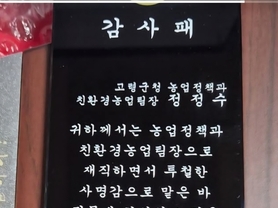 감사패
고령군청 농업정책과
친환경농업팀장 정정수
귀하께서는 농업정책과
친환경농업팀장으로
재직하면서 특철한
사명감으로 맡은 바